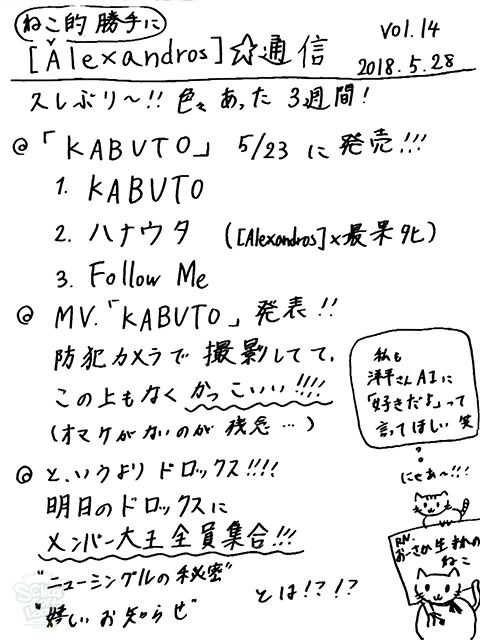 ねこ的 勝手に
[Alexandros]☆通信
vol.14
2018.5.28
久しぶり〜!! 色々あった 3週間!
@「KABUTO」 5/23 に発売!!!
1. KABUTO
2. ハナウタ ([Alexandros]×最果タヒ)
3. Follow Me
@ MV.「KABUTO」発表!!
防犯カメラで 撮影してて、
この上もなく かっこいい!!!!
(オマケがないのが 残念…)
@ と、いうより ドロックス!!!!
明日のドロックスに
メンバー大王全員集合!!!
"ニューシングルの秘密"
"嬉しいお知らせ" とは!?!?
私も
洋平さんAIに
「好きだよ」って
言ってほしい 笑
にゃあ〜!!!
RN.
おーさか生まれの
ねこ